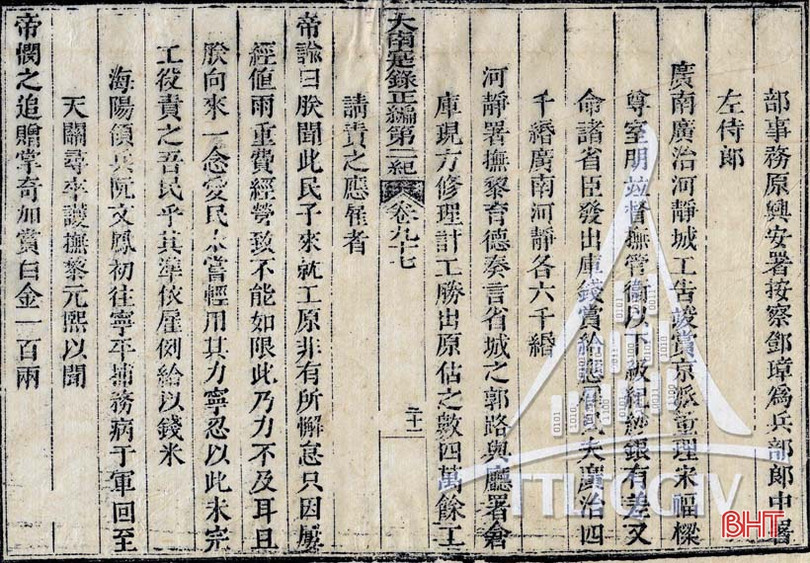 部事務原興安署按察鄧璋為兵部郎中署
左侍郎
廣南廣治河靜城工告竣賞京派董理宋福樑
尊室明並督撫管衛以下級紀紗銀有差又
命諸省臣發出庫錢賞給應雇民夫廣治四
千緡廣南河靜各六千緡
河靜署撫黎育德奏言省城之郭路與廳署倉
庫現方修理計工勝出原估之數四萬餘工
大南寔錄正編第二紀 卷九十七
二十二
請責之應雇者
帝諭曰朕聞此民子來就工原非有所懈怠只因屡
經值雨重費經營致不能如限此乃力不及耳且
朕向來一念愛民未嘗輕用其力寧忍以此未完
工役責之吾民乎其準依雇例給以錢米
海陽領兵阮文鳳初往寧平捕務病于軍回至
天關尋卒護撫黎元熙以聞
帝憫之追贈掌奇加賞白金一百兩
TTLTQGIV
BHT